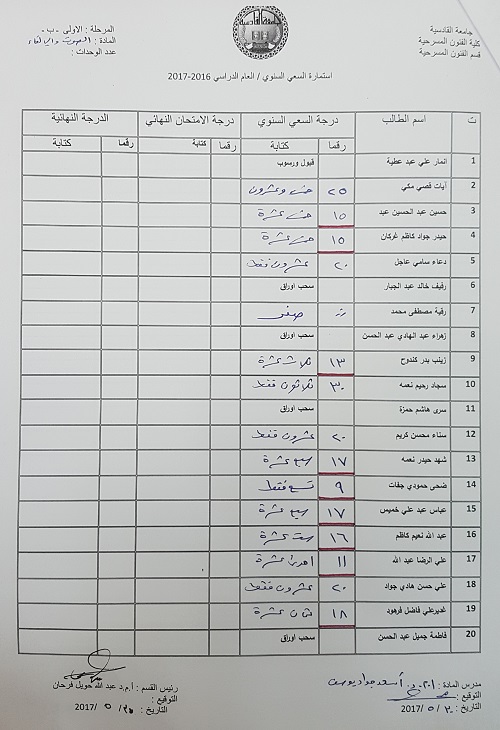 جامعة القادسية
كلية الفنون المسرحية
قسم الفنون المسرحية
المرحلة : الاولى -ب-
المادة : الصوت والالقاء
عدد الوحدات :
استمارة السعي السنوي / العام الدراسي 2016-2017
ت اسم الطالب درجة السعي السنوي درجة الامتحان النهائي الدرجة النهائية
رقما كتابة رقما كتابة رقما كتابة
1 انمار علي عبد عطية قبول ورسوب
2 آيات قصي مكي ٢٥ خمس وعشرون
3 حسين عبد الحسين عبد ١٥ خمس عشرة
4 حيدر جواد كاظم غركان ١٥ خمس عشرة
5 دعاء سامي عاجل ٢٠ عشرون فقط
6 رفيف خالد عبد الجبار سحب اوراق
7 رقية مصطفى محمد صفر
8 زهراء عبد الهادي عبد الحسن سحب اوراق
9 زينب بدر كندوح ١٣ ثلاث عشرة
10 سجاد رحيم نعمه ٣٠ ثلاثون فقط
11 سرى هاشم حمزة سحب اوراق
12 سناء محسن كريم ٢٠ عشرون فقط
13 شهد حيدر نعمه ١٧ سبع عشرة
14 ضحى حمودي جفات ٩ تسع فقط
15 عباس عبد علي خميس ١٧ سبع عشرة
16 عبد الله نعيم كاظم ١٦ ست عشرة
17 علي الرضا عبد الله ١١ احدى عشرة
18 علي حسن هادي جواد ٢٠ عشرون فقط
19 غدير علي فاضل فرهود ١٨ ثمان عشرة
20 فاطمة جميل عبد الحسن سحب اوراق
مدرس المادة : أ.م.د. أسعد جواد يوسف
التوقيع :
التاريخ : ٣٠ / ٥ /2017
رئيس القسم : أ.م.د عبد الله حويل فرحان
التوقيع :
التاريخ : ٣٠ / ٥ /2017